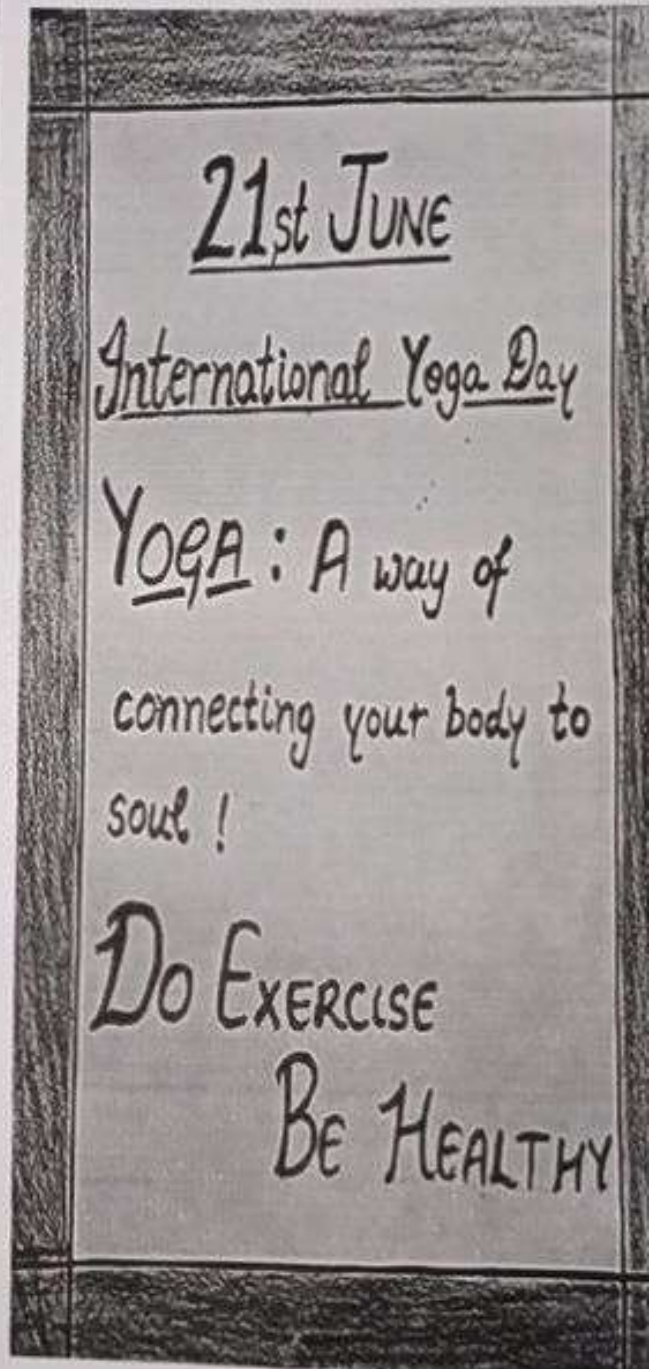 21st JUNE
International Yoga Day
YOGA : A way of
connecting your body to
soul !
DO EXERCISE
BE HEALTHY